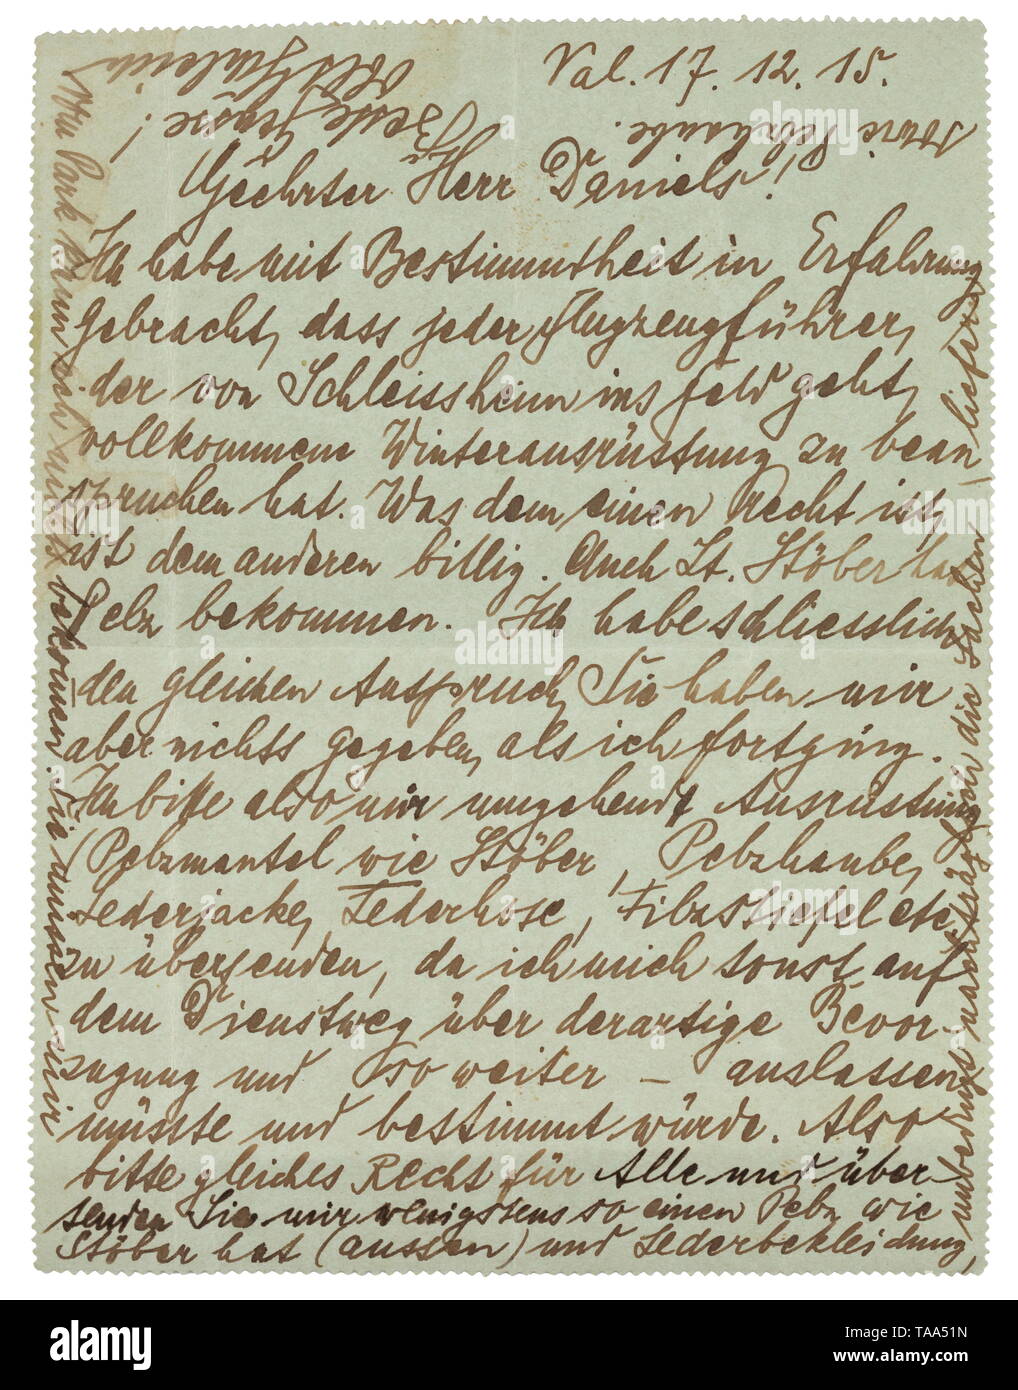 Val. 17. 12. 15.
Geehrter Herr Daniels!
Ich habe mit Bestimmtheit in Erfahrung
gebracht, dass jeder Flugzeugführer,
der von Schleissheim ins Feld geht,
vollkommene Winterausrüstung zu bean-
spruchen hat. Was dem einen Recht ist,
ist dem anderen billig. Auch Lt. Stöber hat
Pelz bekommen. Ich habe schliesslich
den gleichen Anspruch, Sie haben mir
aber nichts gegeben, als ich fortging.
Ich bitte also mir umgehend Ausrüstung
(Pelzmantel wie Stöber, Pelzhaube,
Lederjacke, Lederhose, Filzstiefel etc.
zu übersenden, da ich mich sonst auf
dem Dienstweg über derartige Bevor-
zugung und so weiter — auslassen
müsste und bestimmt würde. Also
bitte gleiches Recht für Alle und über-
senden Sie mir wenigstens so einen Pelz wie
Stöber hat (aussen) und Lederbekleidung,
sowie Pelzhaube.
Sie müssen mir
unbedingt nachträglich die Sachen liefern
Beste Grüsse!
alamy
TAA51N
www.alamy.com